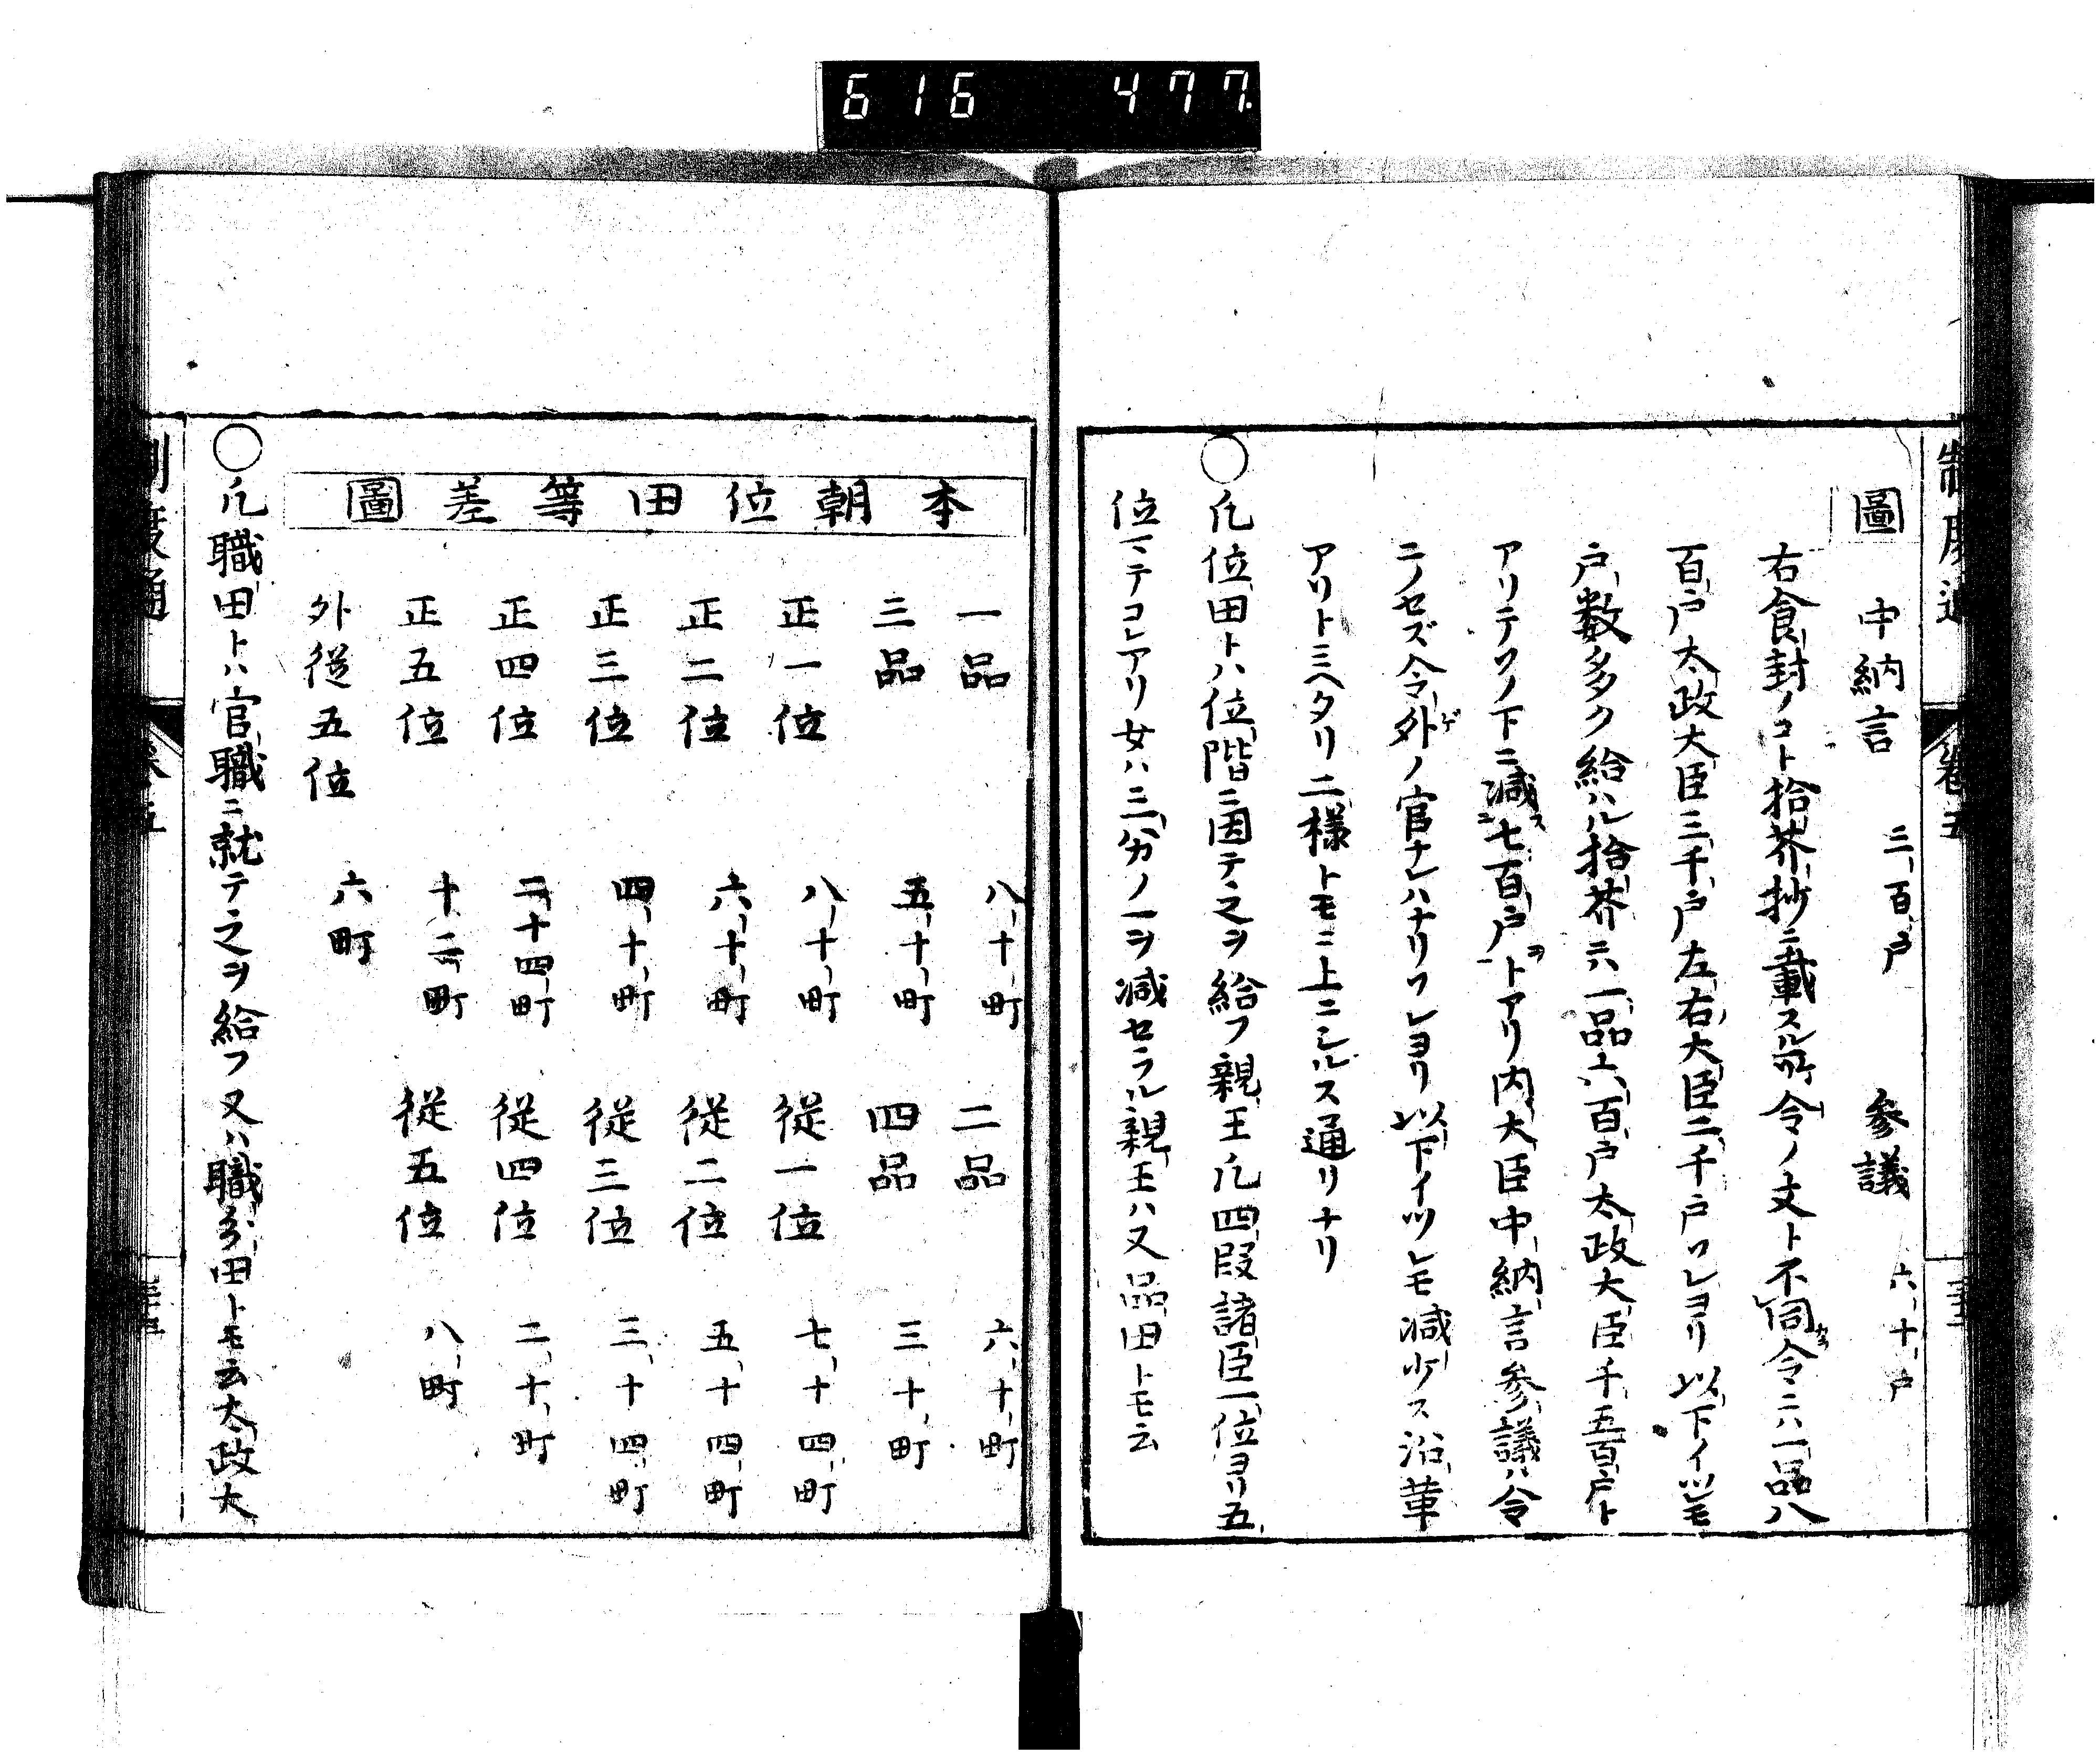 616 477
制度通 巻五
圖 中納言 三百戸 参議 六十戸
右食封ノコト拾芥抄ニ載スル所令ノ文ト不同令ニハ一品八
百戸太政大臣三千戸左右大臣二千戸ワレヨリ以下イツレモ
戸数多ク給ハル拾芥ニハ一品六百戸太政大臣千五百戸ト
アリテワノ下ニ減ス七百戸ヲトアリ内大臣中納言参議ハ令
ニノセズ令外ノ官ナレハナリワレヨリ以下イツレモ減少ス沿革
アリトミヘタリ二様トモニ上ニシルス通リナリ
〇凡位田トハ位階ニ因テ之ヲ給フ親王凡四段諸臣一位ヨリ五
位マテコレアリ女ハ三分ノ一ヲ減セラル親王ハ又品田トモ云
本朝位田等差圖
一品 八十町 二品 六十町
三品 五十町 四品 三十町
正一位 八十町 従一位 七十四町
正二位 六十町 従二位 五十四町
正三位 四十町 従三位 三十四町
正四位 二十四町 従四位 二十町
正五位 十二町 従五位 八町
外従五位 六町
〇凡職田トハ官職ニ就テ之ヲ給フ又ハ職分田トモ云太政大
制度通